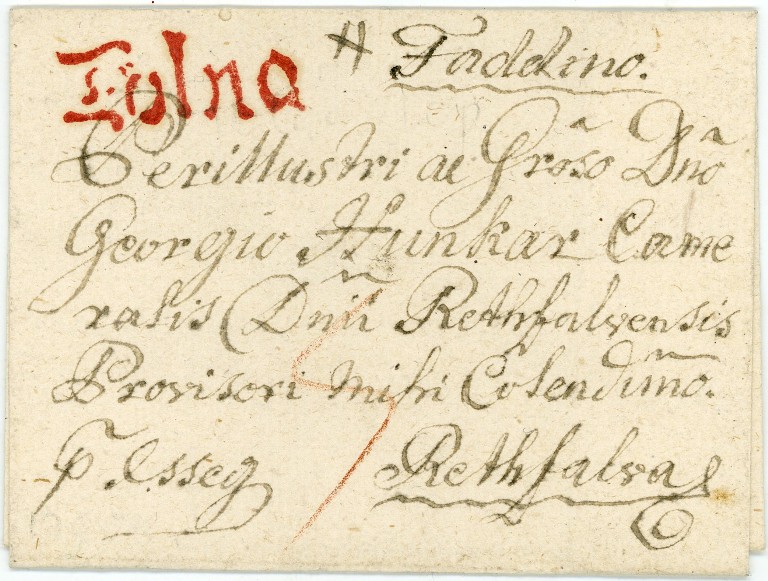 Tolna
# Faddino.
Perillustri ac Grõso Dnõ
Georgio Hunkar Came
ralis Dnii Rethfalvensis
Provisori mihi Colendimõ.
p Esseg Rethfalva